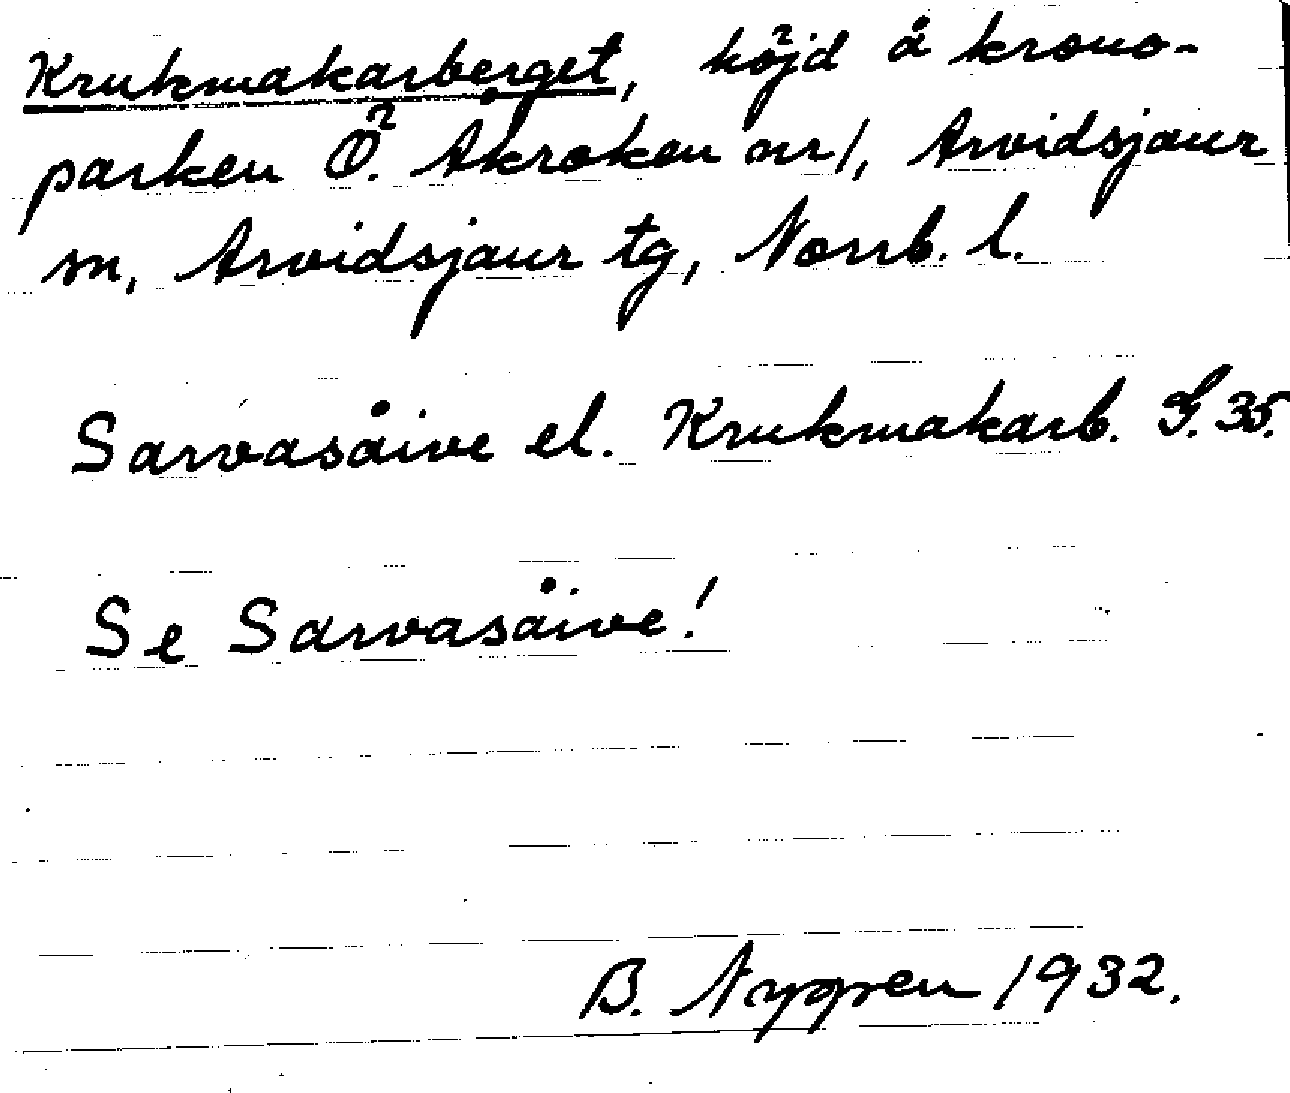 Krukmakarberget, höjd å krono-
parken Ö. Åkroken nr 1, Arvidsjaur
sn, Arvidsjaur tg, Norrb. l.
Sarvasåive el. Krukmakarb. G. 35.
Se Sarvasåive!
B. Nygren 1932.